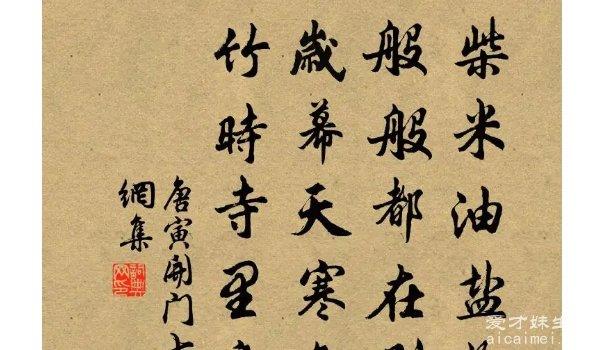 柴米油盐
般般都在
歲幕天寒
竹時寺里
唐寅開門
網集
爱才妹生
aicaimei.